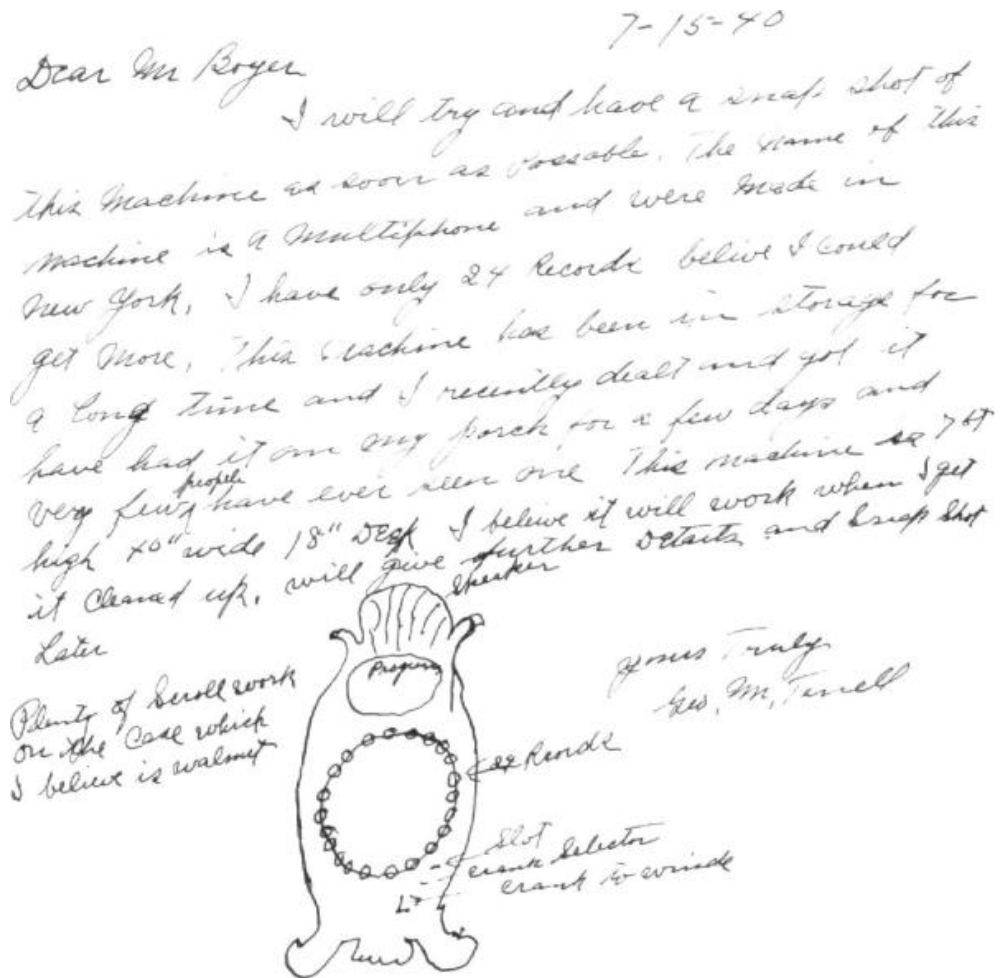 7-15-40
Dear Mr Boyer
I will try and have a snap shot of
this Machine as soon as Possable. The Name of this
machine is a Multiphone and were Made in
New York, I have only 24 Records belive I could
get More, This Machine has been in storage for
a long Time and I recently dealt and got it
have had it on my porch for a few days and
very few people have ever seen one This machine is 7 ft
high 40" wide 18" Deep I believe it will work when I get
it cleaned up. will give further Details and Snap Shot
Later
speaker
Program
Yours Truly
Geo. M. Terrell
Plenty of Scroll work
on the Case which
I believe is walnut
24 Records
Slot
crank Selector
crank to winde